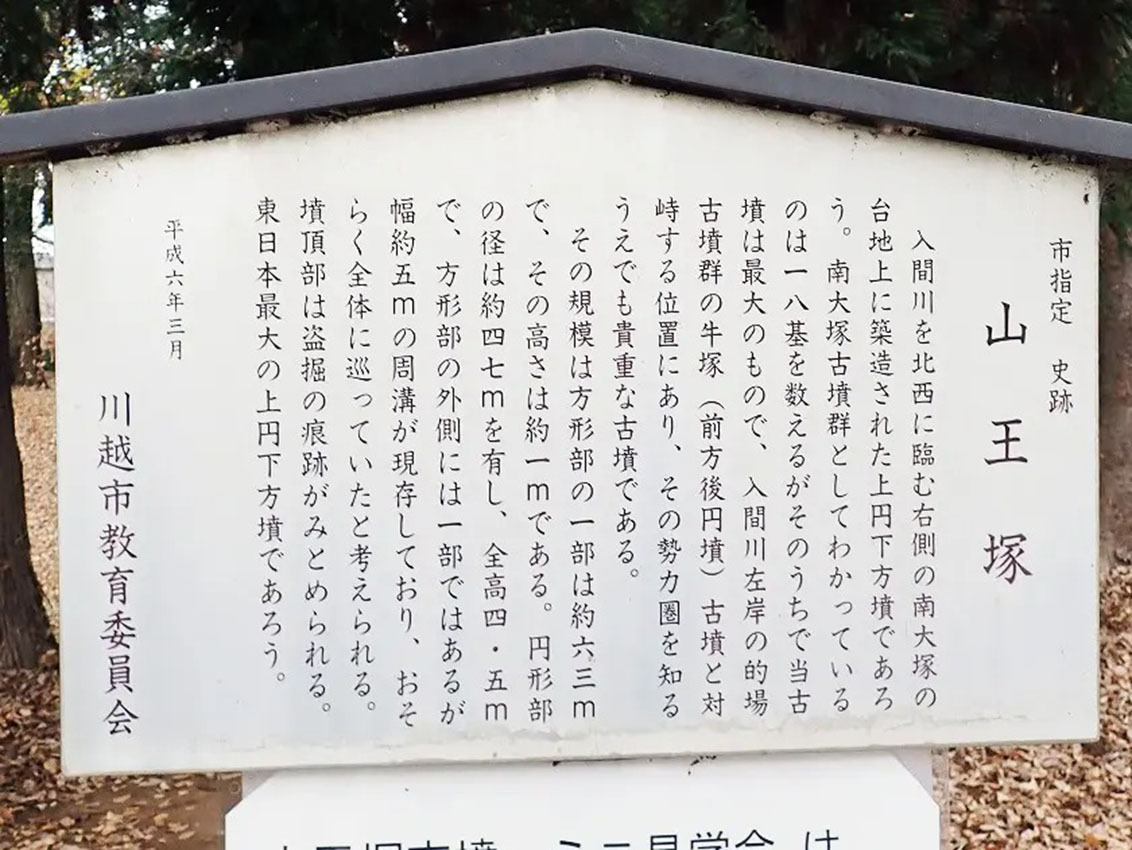 市指定 史跡
山王塚
入間川を北西に臨む右側の南大塚の
台地上に築造された上円下方墳であろ
う。南大塚古墳群としてわかっている
のは一八基を数えるがそのうちで当古
墳は最大のもので、入間川左岸の的場
古墳群の牛塚（前方後円墳）古墳と対
峙する位置にあり、その勢力圏を知る
うえでも貴重な古墳である。
その規模は方形部の一部は約六三m
で、その高さは約一mである。円形部
の径は約四七mを有し、全高四・五m
で、方形部の外側には一部ではあるが
幅約五mの周溝が現存しており、おそ
らく全体に巡っていたと考えられる。
墳頂部は盗掘の痕跡がみとめられる。
東日本最大の上円下方墳であろう。
平成六年三月
川越市教育委員会
ミニ見学会 は